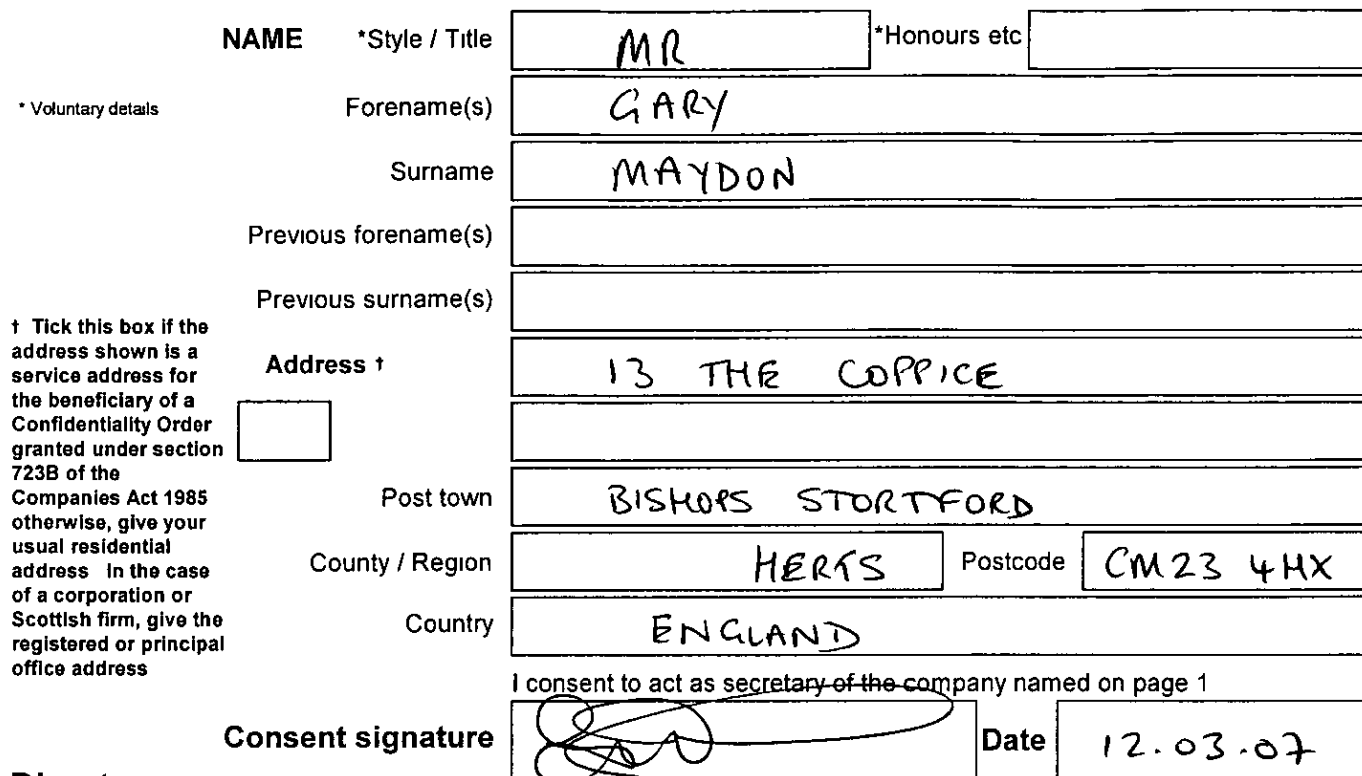 NAME *Style / Title MR *Honours etc
* Voluntary details Forename(s) GARY
Surname MAYDON
Previous forename(s)
Previous surname(s)
† Tick this box if the
address shown is a
service address for
the beneficiary of a
Confidentiality Order
granted under section
723B of the
Companies Act 1985
otherwise, give your
usual residential
address In the case
of a corporation or
Scottish firm, give the
registered or principal
office address
Address † 13 THE COPPICE
Post town BISHOPS STORTFORD
County / Region HERTS Postcode CM23 4HX
Country ENGLAND
I consent to act as secretary of the company named on page 1
Consent signature Date 12.03.07